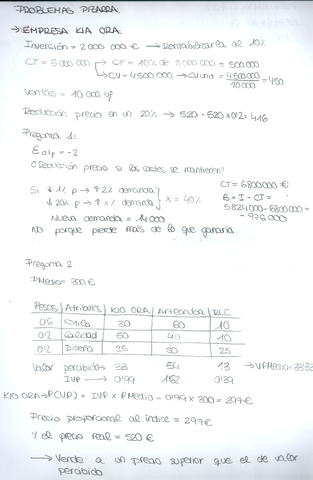 PROBLEMAS PIZARRA.
→ EMPRESA KIA ORA.
Inversión = 2000 000 € → Rentabilizarla al 10%
CT = 5000000 → CF = 10% de 5000000 = 500000
→ CV = 4500000 → CVunit = 4500000/10000 = 450
Ventas = 10000 uf
Reducción precio en un 20% → 520 - 520 x 0'2 = 416
Pregunta 1:
Ed/p = -2
¿Reducción precio si los costes se mantienen?
Si ↓ 1% p → ↑ 2% demanda
↓ 20% p → ↑ x% demanda } x = 40%
CT = 6800000 €
B = I - CT =
5824000 - 6800000 =
- 976000
Nueva demanda = 14000
NO porque pierde más de lo que ganaría.
Pregunta 2:
PMedio = 300 €
Pesos | Atributos | KIO ORA | Artesanba | RLC
0'6 | | 30 | 60 | 10
0'2 | Calidad | 50 | 40 | 10
0'2 | Diseño | 25 | 50 | 25
Valor percibido → 33 54 13 → VPMedio = 33'33
IVP → 0'99 1'62 0'39
KIO ORA → P(VP) = IVP x PMedio = 0'99 x 300 = 297 €
Precio proporcional al índice = 297 €
Y el precio real = 520 €
→ Vende a un precio superior que el de valor
percibido